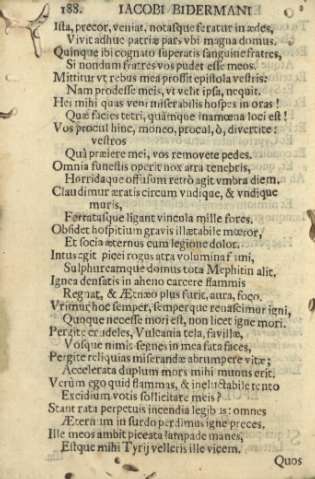 188. IACOBI BIDERMANI
Ista, precor, veniat, notasque feratur in ædes,
Vivit adhuc patriæ pars ubi magna domus.
Quinque ibi cognato superatis sanguine fratres,
Si nondum fratres vos pudet esse meos.
Mittitur vt rebus mea prosit epistola vestris:
Nam prodesse meis, vt velit ipsa, nequit.
Hei mihi quas veni miserabilis hospes in oras!
Quæ facies tetri, quámque inamœna loci est!
Vos procul hinc, moneo, procul, ò, divertite:
vestros
Quà præiere mei, vos removete pedes.
Omnia funestis operit nox atra tenebris,
Horridaque offusum retrò agit vmbra diem.
Claudimur æratis circum vndique, & vndique
muris,
Ferratasque ligant vincula mille fores,
Obsidet hospitium gravis illætabile mœror,
Et socia æternus cum legione dolor.
Intus agit picei rogus atra volumina fumi,
Sulphureamque domus tota Mephitin alit,
Ignea densatis in aheno carcere flammis
Regnat, & Ætnæo plus furit, aura, foco.
Vrimur hoc semper, semperque renascimur igni,
Quinque necesse mori est, non licet igne mori.
Pergite crudeles, Vulcania tela, favillæ,
Vosque nimis segnes in mea fata faces,
Pergite reliquias miserandæ abrumpere vitæ;
Accelerata duplum mors mihi munus erit.
Verùm ego quid flammas, & ineluctabile tento
Excidium votis sollicitare meis?
Stant rata perpetuis incendia legibus: omnes
Æternum in surdo perdimus igne preces.
Ille meos ambit piceata lampade manes,
Estque mihi Tyrij velleris ille vicem.
Quos